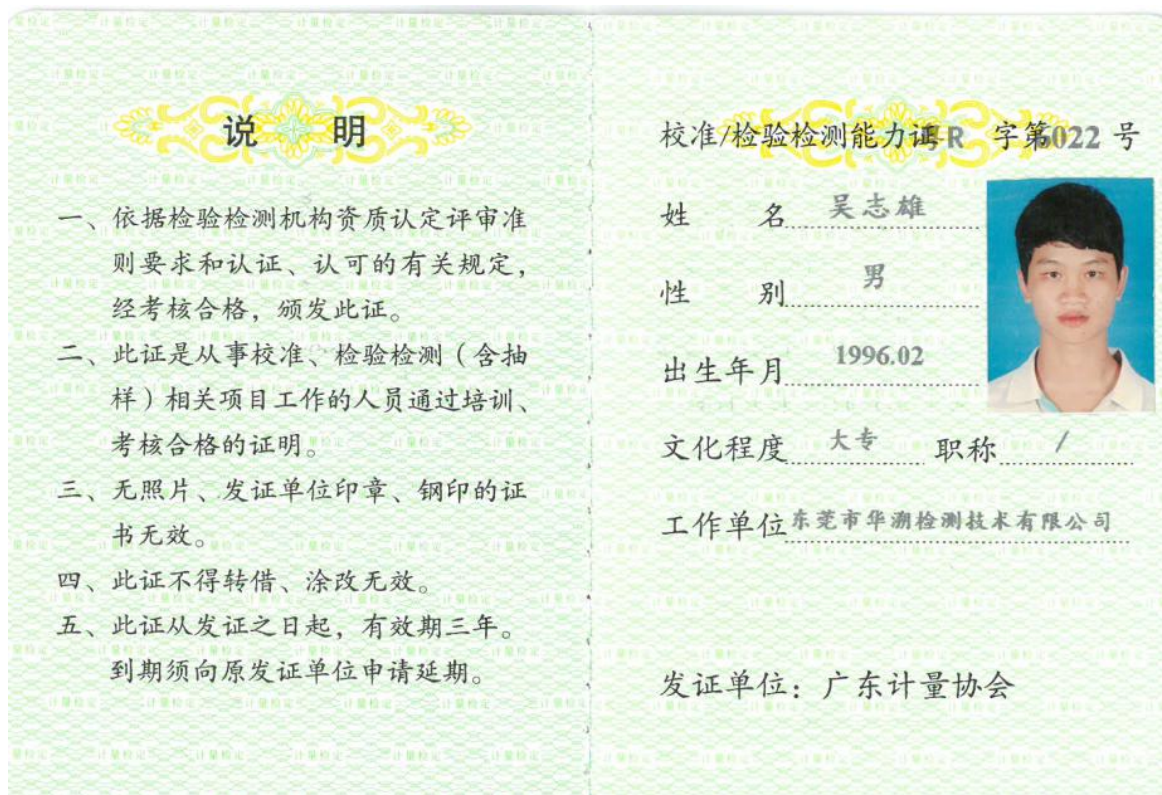 说 明
一、依据检验检测机构资质认定评审准
则要求和认证、认可的有关规定，
经考核合格，颁发此证。
二、此证是从事校准、检验检测（含抽
样）相关项目工作的人员通过培训、
考核合格的证明。
三、无照片、发证单位印章、钢印的证
书无效。
四、此证不得转借、涂改无效。
五、此证从发证之日起，有效期三年。
到期须向原发证单位申请延期。
校准/检验检测能力证 R 字第6022 号
姓 名 吴志雄
性 别 男
出生年月 1996.02
文化程度 大专 职称 /
工作单位 东莞市华溯检测技术有限公司
发证单位：广东计量协会